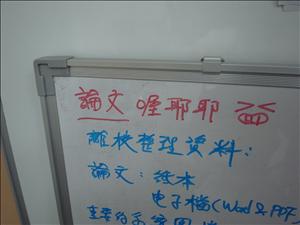 論文 喔耶耶
離校整理資料:
論文:紙本
電子檔(Word & PDF